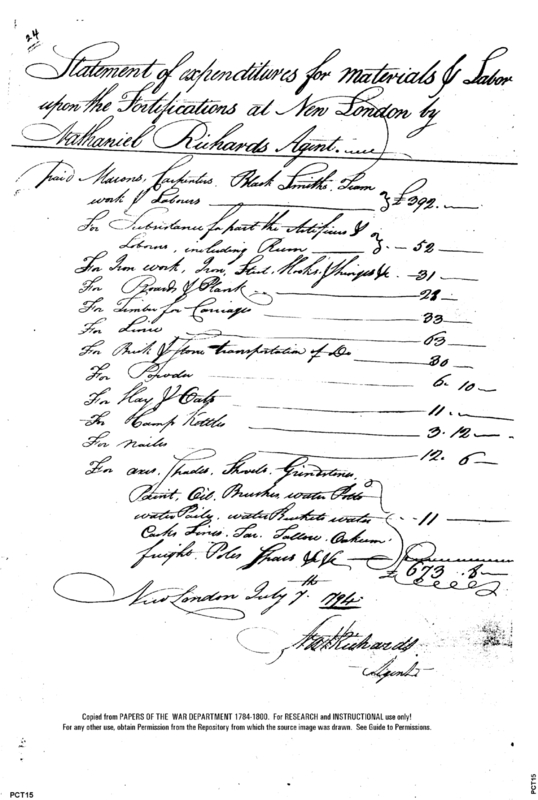 24
Statement of expenditures for materials & Labor
upon the Fortifications at New London by
Nathaniel Richards Agent.
Paid Masons, Carpenters, Black Smiths, Team
work & Labours £392.
For Subsistance for part the Artificers &
Labours, including Rum 52
For Iron work, Iron, Steel, Hooks, & hinges &c. 31
For Boards & Plank 28
For Timber for Carriages 33
For Lime 63
For Brick & Stone transportation of Do 30
For Powder 6. 10
For Hay & Oats 11.
For Camp Kettles 3. 12
For nails 12. 6
For axes, Spades, Shovels, Grindstones,
Paint, Oil, Brushes, water Potts
water Pails, water Buckets water
Casks Lines, Tar, Tallow, Oakum 11
freight, Poles Spars &c &c
£673. 8
New London July 7th 1794
Natl Richards
Agent
Copied from PAPERS OF THE WAR DEPARTMENT 1784-1800. For RESEARCH and INSTRUCTIONAL use only!
For any other use, obtain Permission from the Repository from which the source image was drawn. See Guide to Permissions.
PCT15
PCT15